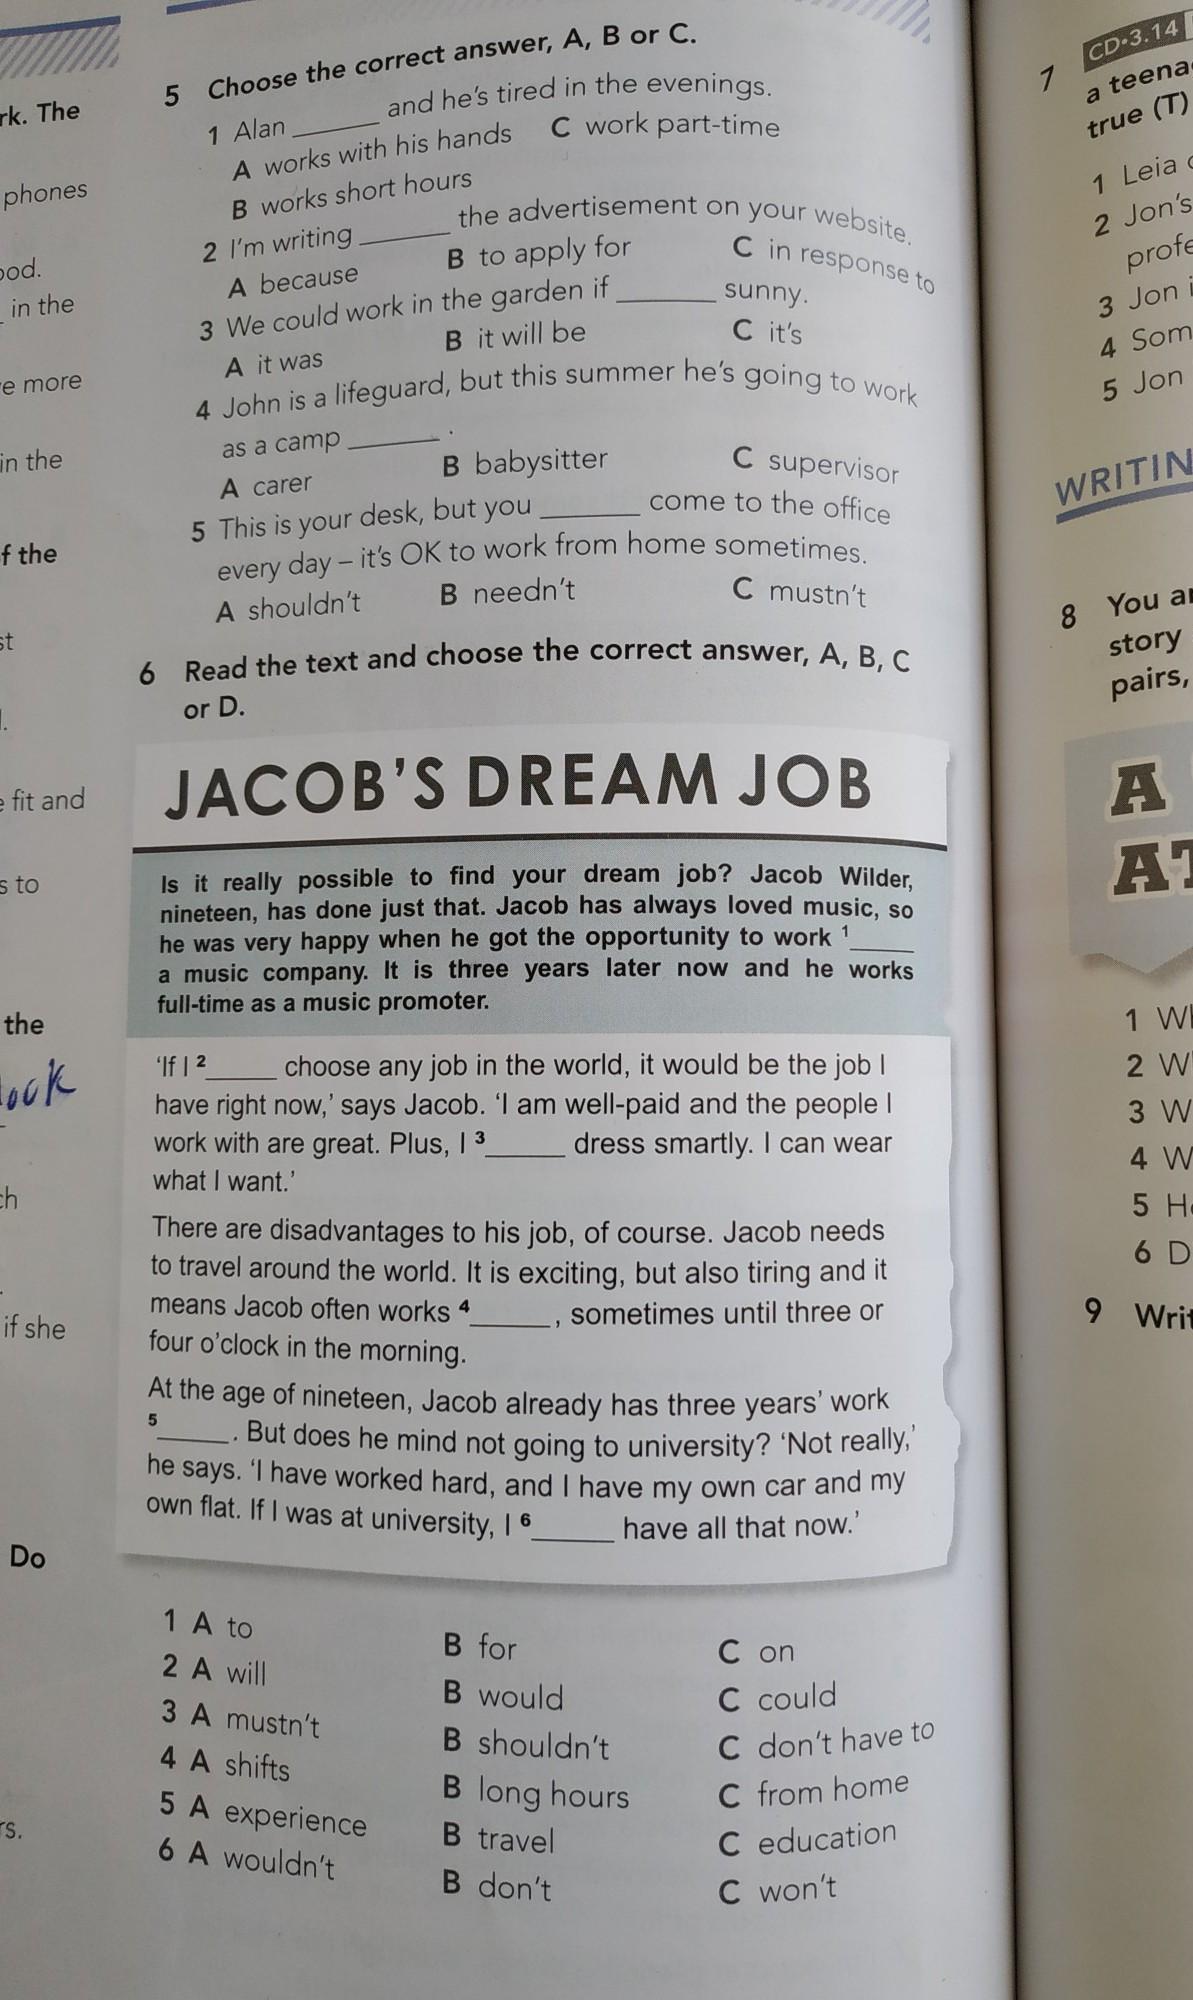 rk. The
phones
ood.
in the
e more
in the
f the
st
l.
e fit and
s to
the
ch
if she
Do
rs.
5 Choose the correct answer, A, B or C.
1 Alan ______ and he's tired in the evenings.
A works with his hands C work part-time
B works short hours
2 I'm writing ______ the advertisement on your website.
A because B to apply for C in response to
3 We could work in the garden if ______ sunny.
A it was B it will be C it's
4 John is a lifeguard, but this summer he's going to work
as a camp ______ .
A carer B babysitter C supervisor
5 This is your desk, but you ______ come to the office
every day – it's OK to work from home sometimes.
A shouldn't B needn't C mustn't
6 Read the text and choose the correct answer, A, B, C
or D.
JACOB'S DREAM JOB
Is it really possible to find your dream job? Jacob Wilder,
nineteen, has done just that. Jacob has always loved music, so
he was very happy when he got the opportunity to work ¹_____
a music company. It is three years later now and he works
full-time as a music promoter.
'If I ²_____ choose any job in the world, it would be the job I
have right now,' says Jacob. 'I am well-paid and the people I
work with are great. Plus, I ³_____ dress smartly. I can wear
what I want.'
There are disadvantages to his job, of course. Jacob needs
to travel around the world. It is exciting, but also tiring and it
means Jacob often works ⁴_____, sometimes until three or
four o'clock in the morning.
At the age of nineteen, Jacob already has three years' work
⁵_____. But does he mind not going to university? 'Not really,'
he says. 'I have worked hard, and I have my own car and my
own flat. If I was at university, I ⁶_____ have all that now.'
1 A to B for C on
2 A will B would C could
3 A mustn't B shouldn't C don't have to
4 A shifts B long hours C from home
5 A experience B travel C education
6 A wouldn't B don't C won't
CD•3.14
7 a teena
true (T)
1 Leia
2 Jon's
profe
3 Jon i
4 Som
5 Jon
WRITIN
8 You ar
story
pairs,
A
AT
1 Wh
2 W
3 W
4 W
5 Ho
6 D
9 Writ